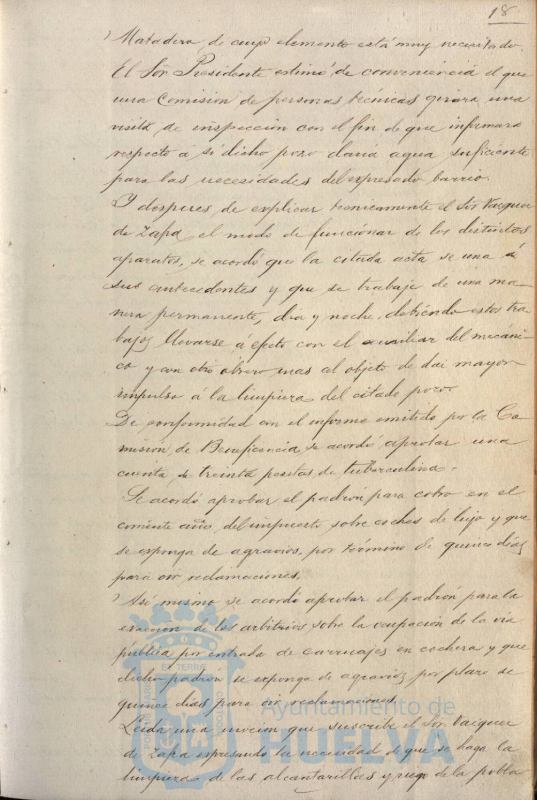 18
Matadero, de cuyo elemento está muy necesitado.
El Sor Presidente estimó de conveniencia el que
una Comision de personas técnicas girara una
visita de inspección con el fin de que informara
respecto á si dicho pozo daria agua suficiente
para las necesidades del expresado barrio.
Y despues de explicar tecnicamente el Sor Vazquez
de Zafra el modo de funcionar de los distintos
aparatos, se acordó que la citada acta se una á
sus antecedentes y que se trabaje de una ma
nera permanente, dia y noche, debiendo estos tra
bajos llevarse á efecto con el auxiliar del mecáni
co y con otro obrero mas al objeto de dar mayor
impulso á la limpieza del citado pozo.
De conformidad con el informe emitido por la Co
mision de Beneficencia se acordó aprobar una
cuenta de treinta pesetas de tuberculina.
Se acordó aprobar el padron para cobro en el
corriente año del impuesto sobre coches de lujo y que
se exponga de agravios, por término de quince dias
para oir reclamaciones.
Asi mismo se acordó aprobar el padrón para la
exaccion de los arbitrios sobre la ocupacion de la via
publica por entrada de carruajes en cochera y que
dicho padron se exponga de agravios por plazo de
quince dias para oir reclamaciones
Leida una mocion que suscribe el Sor Vazquez
de Zafra expresando la necesidad de que se haga la
limpieza de las alcantarillas y riego de la pobla
Ayuntamiento de
HUELVA